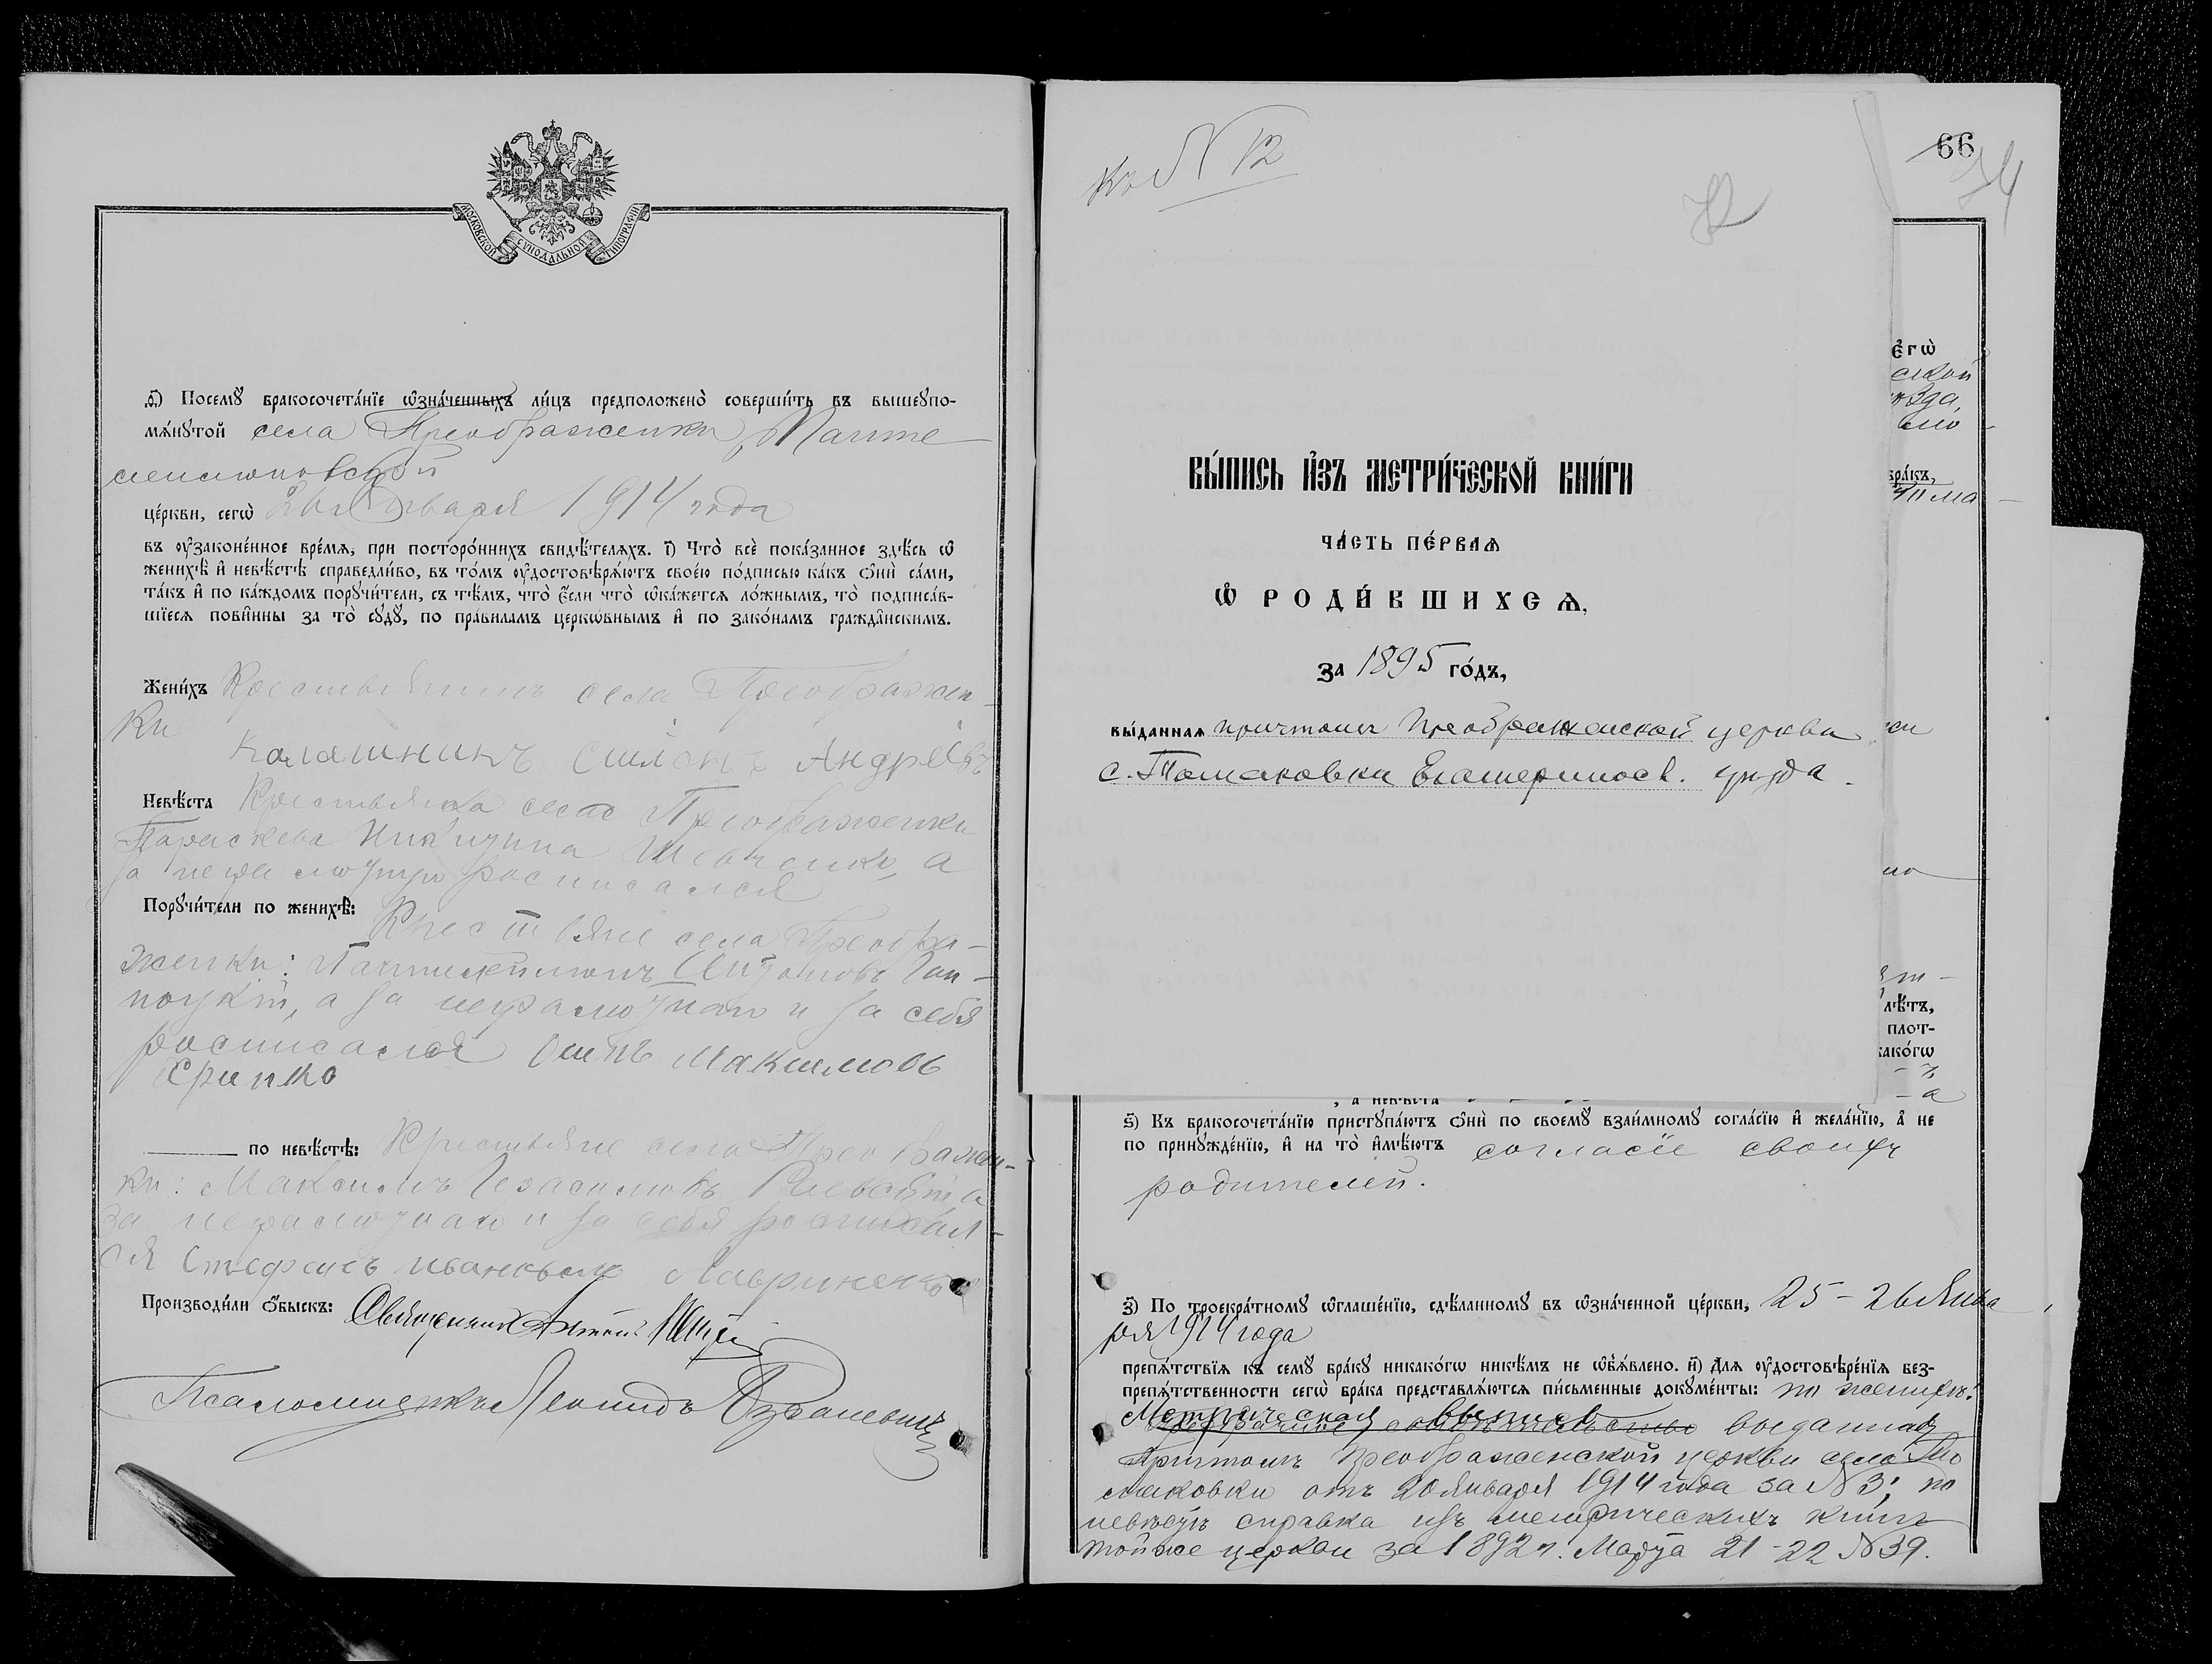 МОСКОВСКОЙ СѴНОДАЛЬНОЙ ТИПОГРАФІИ
Посемꙋ̀ бракосочета́нїе ѡ҆зна́ченныхъ ли́цъ предположенѡ̀ соверши́ть въ вышеꙋпо-
мѧ́нꙋтой села Преображенки, Панте
леимоновской
це́ркви, сегѡ̀ 26го Января 1914 года
въ ᲂу҆законе́нное вре́мѧ, при посторо́ннихъ свидѣ́телѧхъ. і҃) Что̀ всѐ пока́занное здѣ́сь ѡ҆
женихѣ̀ и҆ невѣ́стѣ справедли́во, въ то́мъ ᲂу҆достовѣрѧ́ютъ свое́ю по́дписью ка́къ ѻ҆нѝ са́ми,
та́къ и҆ по ка́ждомъ порꙋчи́тели, съ тѣ́мъ, что̀ є҆́сли что̀ ѡ҆ка́жетсѧ ло́жнымъ, то̀ подписа́в-
шїесѧ пови́нны за то̀ сꙋдꙋ̀, по пра́виламъ церко́внымъ и҆ по зако́намъ гражда́нскимъ.
Жени́хъ Крестьянинъ села Преображен-
ки
Калашникъ Симонъ Андреевъ
Невѣ́ста Крестьянка села Преображенки
Параскева Никитина Шевченко, а
за неграмотную росписался
Порꙋчи́тели по женихѣ̀: Крестьяне села Преобра-
женки: Пантелеимонъ
а за неграмотнаго и за себя
росписался Осипъ Максимовъ
по невѣ́стѣ: Крестьяне села Преображен-
ки: Максимъ Герасимовъ
за неграмотнаго и за себя росписал-
ся Стефанъ Ивановъ Лавриненко
Производи́ли ѻ҆́быскъ: Священникъ Антоній
Псаломщикъ Леонидъ
къ N 12
66
ВЫ́ПИСЬ И҆ЗЪ МЕТРИ́ЧЕСКОЙ КНИ́ГИ
ЧА́СТЬ ПЕ́РВАѦ
Ѡ҆ РОДИ́ВШИХСѦ,
за 1895 го́дъ,
вы́даннаѧ причтомъ Преображенской церкви
с. Томаковки Екатериносл. уѣзда.
є҆гѡ̀
ской
ѣзда,
бра́къ,
лѣ́тъ,
плот-
како́гѡ
, а҆ невѣ́ста
ѕ҃) Къ бракосочета́нїю пристꙋпа́ютъ ѻ҆нѝ по своемꙋ̀ взаи́мномꙋ согла́сїю и҆ жела́нїю, а҆ не
по принꙋжде́нїю, и҆ на то̀ и҆мѣ́ютъ согласіе своихъ
родителей.
з҃) По троекра́тномꙋ ѡ҆глаше́нїю, сдѣ́ланномꙋ въ ѡ҆зна́ченной це́ркви, 25 - 26го Янва
ря 1914 года
препѧ́тствїѧ къ семꙋ̀ бра́кꙋ никако́гѡ никѣ́мъ не ѡ҆б̾ѧ́влено. и҃) Для ᲂу҆достовѣре́нїѧ без-
препѧ́тственности сегѡ̀ бра́ка представлѧ́ютсѧ пи́сьменные докꙋме́нты: по женихѣ:
Метрическая выпись выданная
Причтомъ Преображенской церкви села То
маковки отъ 20 Января 1914 года за N 3; по
невѣстѣ справка изъ метрическихъ книгъ
той же церкви за 1892 г. Марта 21-22 N 39.